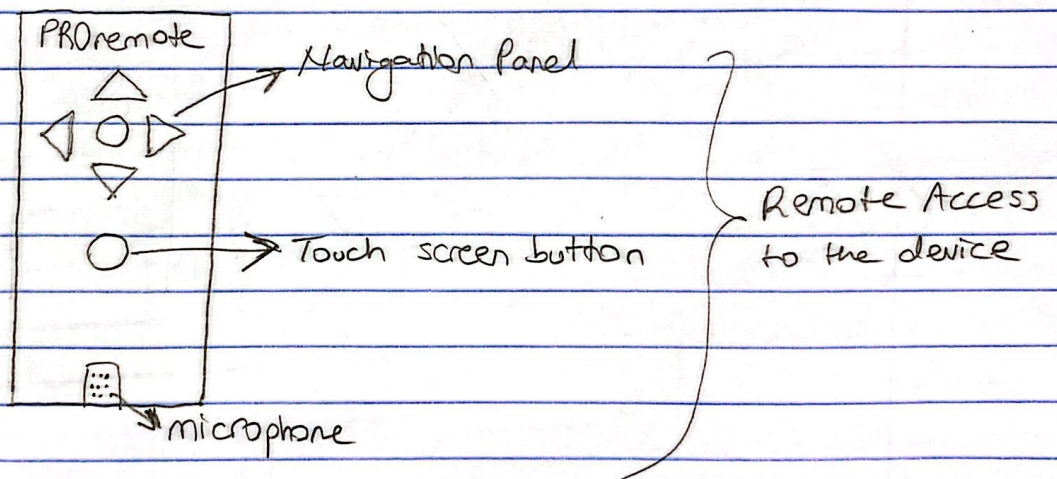 PROremote
Navigation Panel
Touch screen button
microphone
Remote Access
to the device